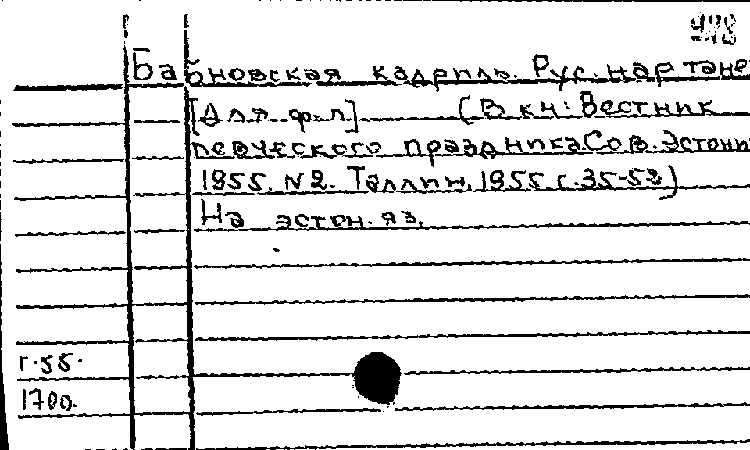 978
Бабновская кадриль. Рус. нар тане
[Для ф-п] (В кн: Вестник
певческого праздника Сов. Эстони
1955. №2. Таллин, 1955 с. 35-53)
На эстон. яз.
г.55.
1700.